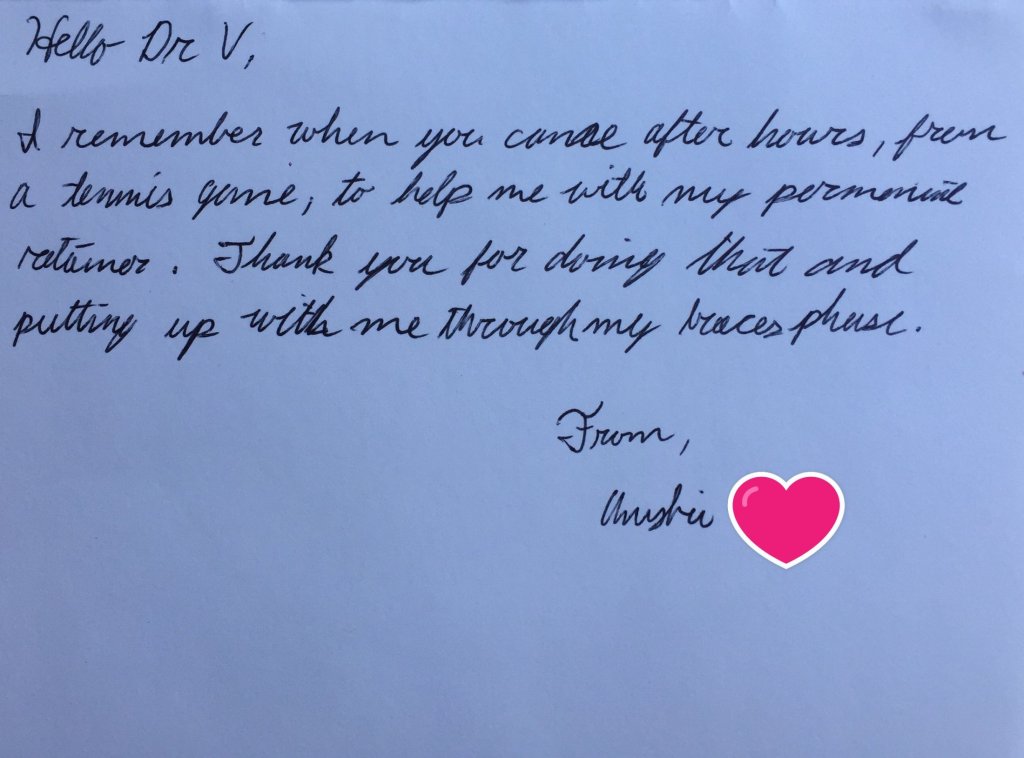 Hello Dr V,
I remember when you came after hours, from
a tennis game, to help me with my permenent
retainer. Thank you for doing that and
putting up with me through my braces phase.
From,